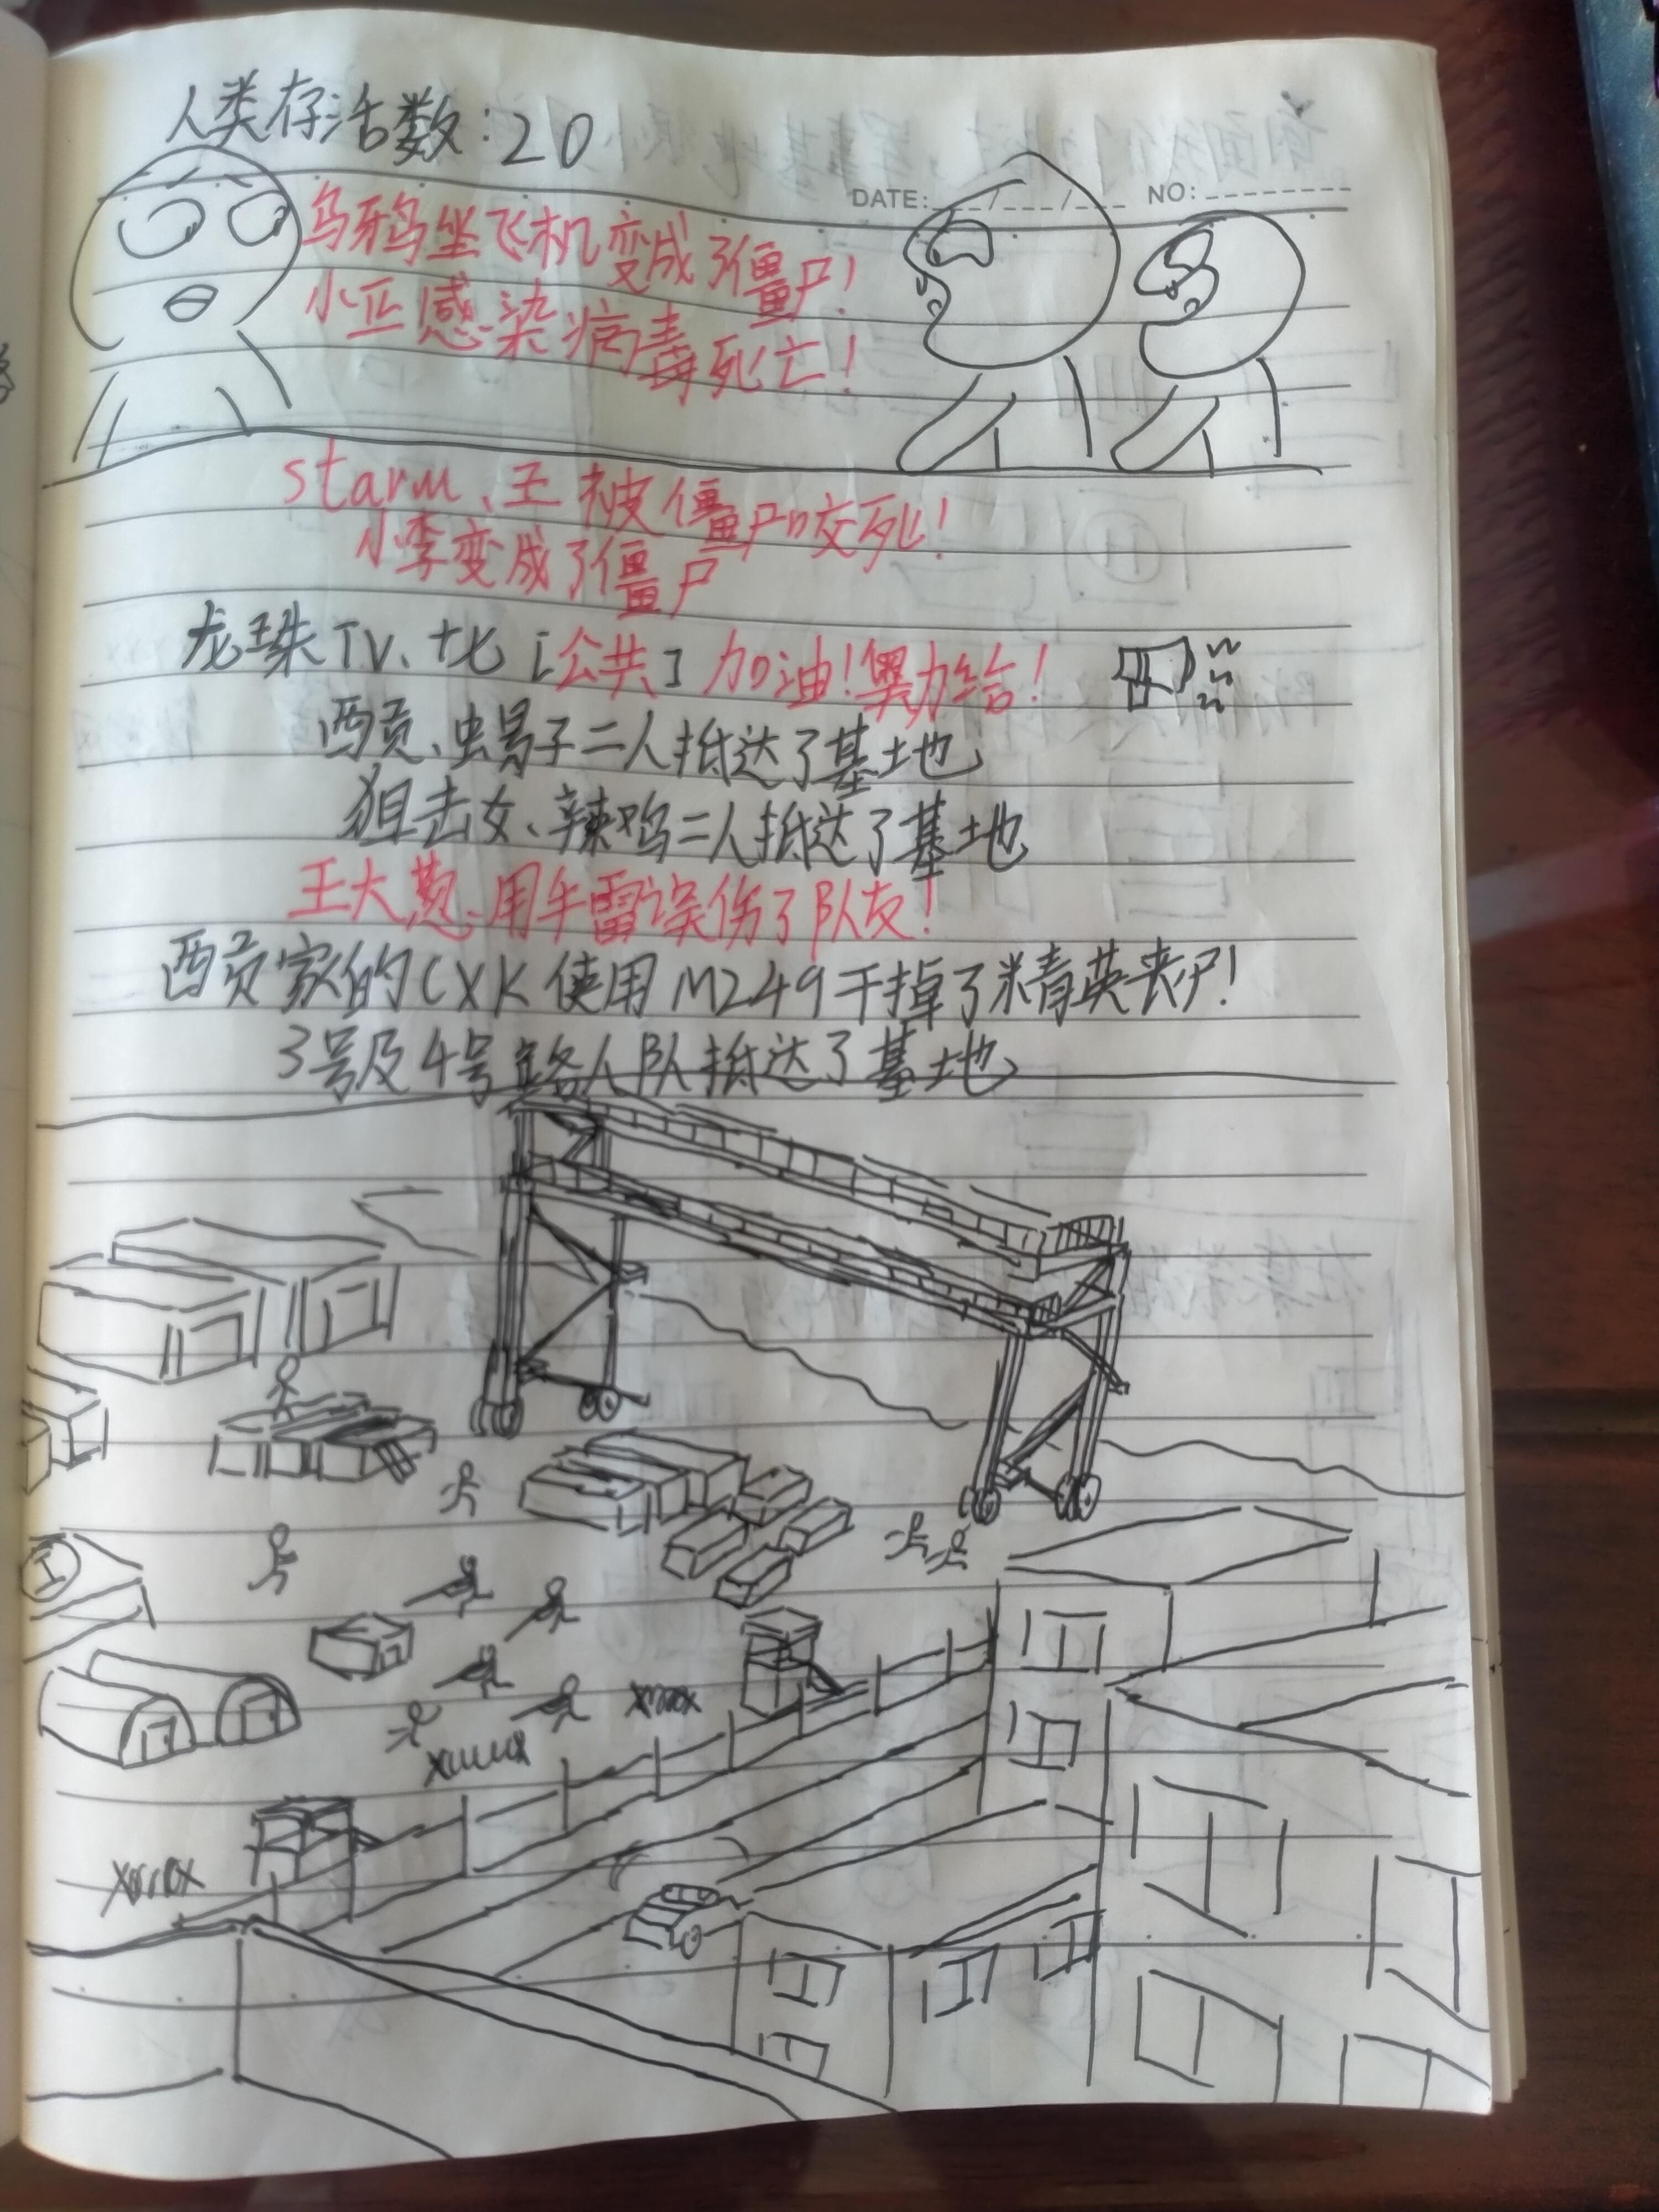 人类存活数:20
DATE: / / NO:
乌鸦坐飞机变成了僵尸!
小亚感染病毒死亡!
starm、王被僵尸咬死!
小李变成了僵尸
龙珠TV、七 [公共] 加油!奥力给!
西贡、蝎子二人抵达了基地
狙击女、辣鸡二人抵达了基地
王大葱、用手雷误伤了队友!
西贡家的CXK使用M249干掉了精英丧尸!
3号及4号路人队抵达了基地